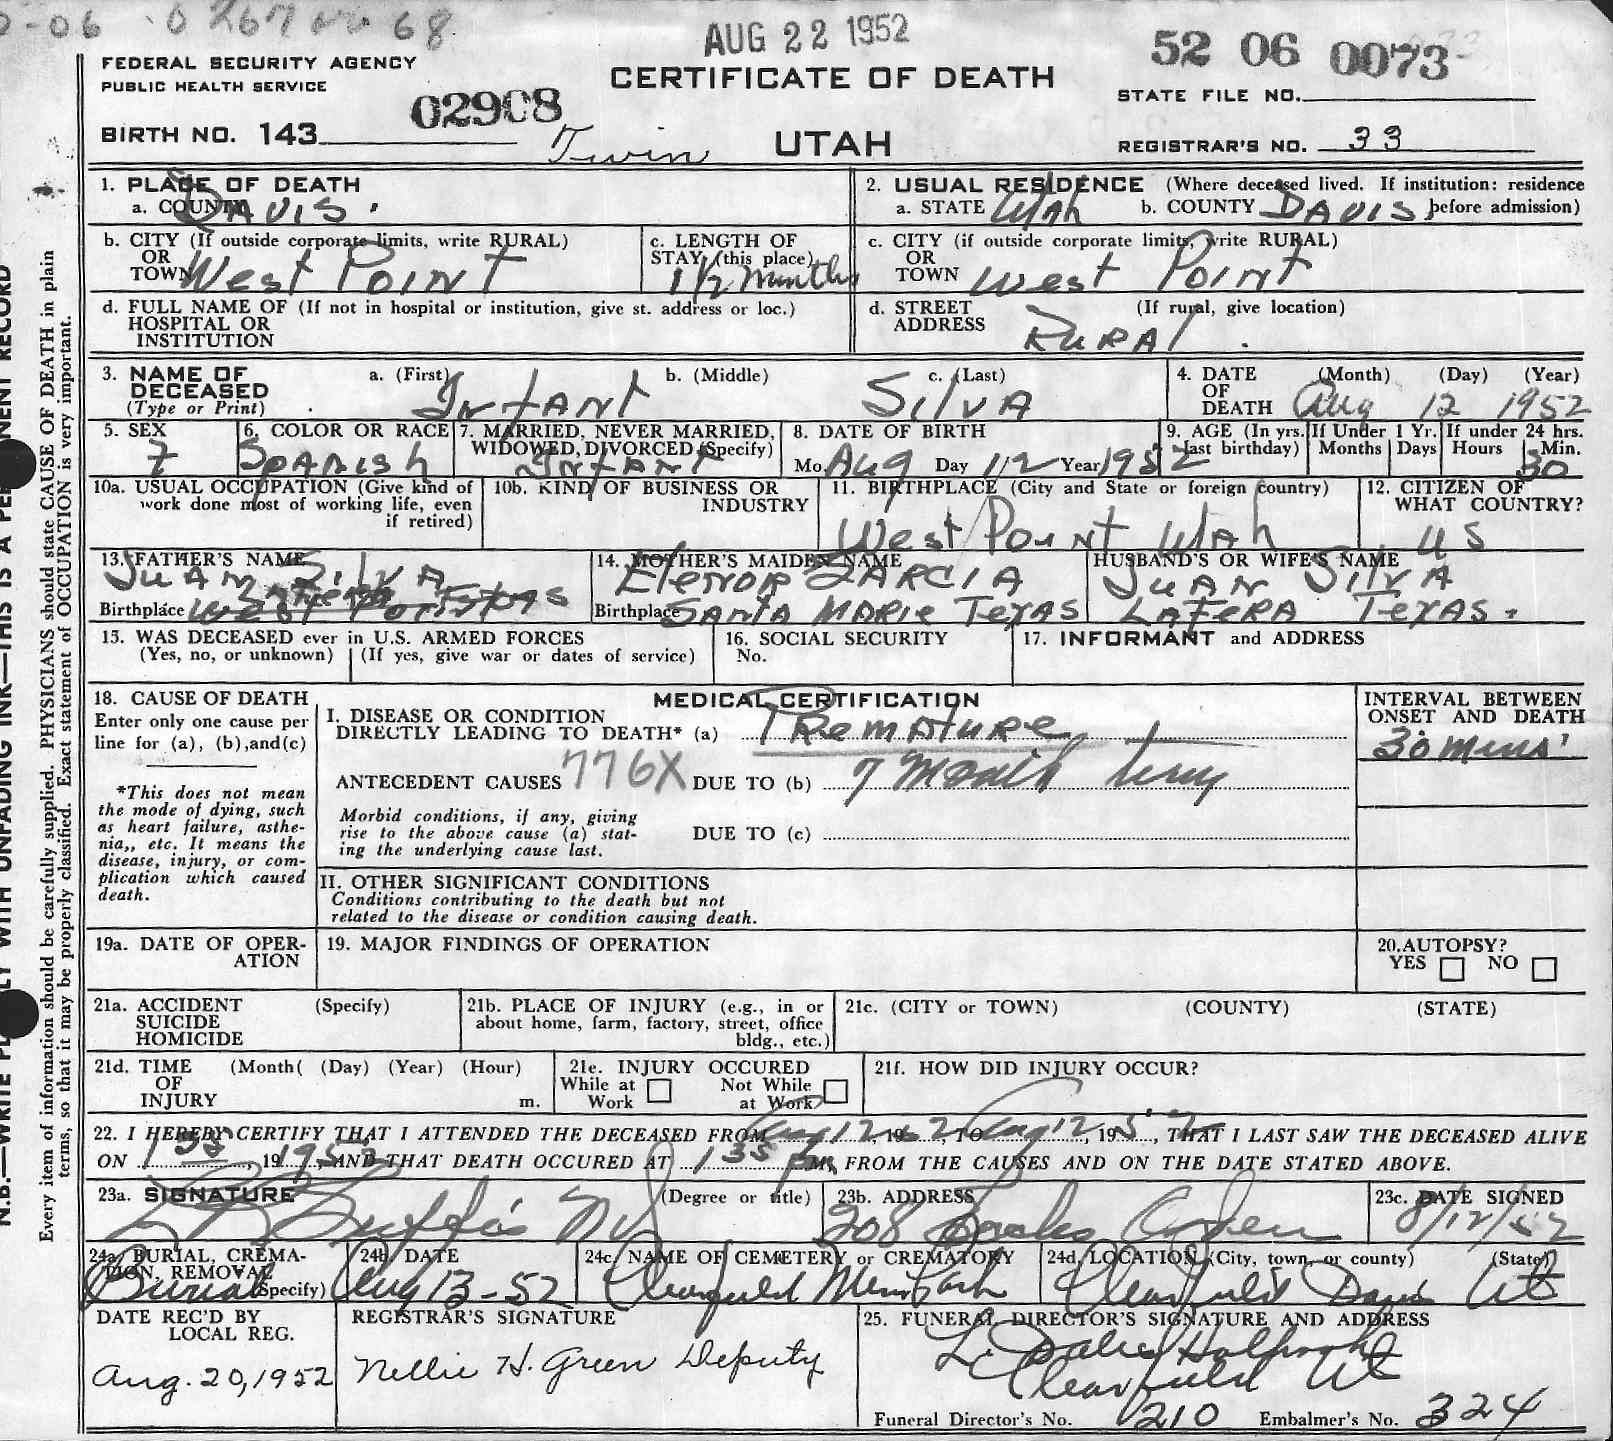 AUG 22 1952
52 06 0073
FEDERAL SECURITY AGENCY
PUBLIC HEALTH SERVICE
02908
CERTIFICATE OF DEATH
STATE FILE NO.
BIRTH NO. 143
Twin
UTAH
REGISTRAR'S NO. 33
1. PLACE OF DEATH
a. COUNTY DAVIS.
2. USUAL RESIDENCE (Where deceased lived. If institution: residence before admission)
a. STATE Utah b. COUNTY DAVIS
b. CITY (If outside corporate limits, write RURAL)
OR TOWN West POINT
c. LENGTH OF STAY (this place) 1 1/2 Months
c. CITY (if outside corporate limits, write RURAL)
OR TOWN West POINT
d. FULL NAME OF (If not in hospital or institution, give st. address or loc.)
HOSPITAL OR
INSTITUTION
d. STREET ADDRESS (If rural, give location)
RURAl
3. NAME OF DECEASED (Type or Print)
a. (First) INfANt b. (Middle) c. (Last) SilvA
4. DATE OF DEATH (Month) (Day) (Year)
Aug 12 1952
5. SEX
6. COLOR OR RACE SPANish
7. MARRIED, NEVER MARRIED, WIDOWED, DIVORCED (Specify) INfANT
8. DATE OF BIRTH
Mo. Aug Day 12 Year 1952
9. AGE (In yrs. last birthday) If Under 1 Yr. Months Days If under 24 hrs. Hours Min. 30
10a. USUAL OCCUPATION (Give kind of work done most of working life, even if retired)
10b. KIND OF BUSINESS OR INDUSTRY
11. BIRTHPLACE (City and State or foreign country)
West Point Utah
12. CITIZEN OF WHAT COUNTRY?
US
13. FATHER'S NAME
JUAN SilvA
Birthplace
14. MOTHER'S MAIDEN NAME
GARCIA
Birthplace SANTA MARIE TEXAS
HUSBAND'S OR WIFE'S NAME
JUAN SilvA
LAFERA TEXAS.
15. WAS DECEASED ever in U.S. ARMED FORCES
(Yes, no, or unknown) (If yes, give war or dates of service)
16. SOCIAL SECURITY
No.
17. INFORMANT and ADDRESS
18. CAUSE OF DEATH
Enter only one cause per line for (a), (b), and (c)
*This does not mean the mode of dying, such as heart failure, asthenia,, etc. It means the disease, injury, or complication which caused death.
MEDICAL CERTIFICATION
I. DISEASE OR CONDITION
DIRECTLY LEADING TO DEATH* (a) PREMATURE
ANTECEDENT CAUSES 776X DUE TO (b) 7 Month
Morbid conditions, if any, giving rise to the above cause (a) stating the underlying cause last.
DUE TO (c)
INTERVAL BETWEEN ONSET AND DEATH
30 mins
II. OTHER SIGNIFICANT CONDITIONS
Conditions contributing to the death but not
related to the disease or condition causing death.
19a. DATE OF OPERATION
19. MAJOR FINDINGS OF OPERATION
20. AUTOPSY?
YES NO
21a. ACCIDENT (Specify)
SUICIDE
HOMICIDE
21b. PLACE OF INJURY (e.g., in or about home, farm, factory, street, office bldg., etc.)
21c. (CITY or TOWN) (COUNTY) (STATE)
21d. TIME OF INJURY (Month( (Day) (Year) (Hour) m.
21e. INJURY OCCURED
While at Work Not While at Work
21f. HOW DID INJURY OCCUR?
22. I HEREBY CERTIFY THAT I ATTENDED THE DECEASED FROM Aug 12, 1952, TO Aug 12, 1952, THAT I LAST SAW THE DECEASED ALIVE
ON 1 35, 19 1952, AND THAT DEATH OCCURED AT 1 35 P M, FROM THE CAUSES AND ON THE DATE STATED ABOVE.
23a. SIGNATURE (Degree or title)
23b. ADDRESS
208 Ogden
23c. DATE SIGNED
8/12/52
24a. BURIAL, CREMATION, REMOVAL (Specify)
Burial
24b. DATE
Aug 13-52
24c. NAME OF CEMETERY or CREMATORY
Clearfield Mem Park
24d. LOCATION (City, town, or county) (State)
Clearfield Davis Ut
DATE REC'D BY LOCAL REG.
Aug. 20, 1952
REGISTRAR'S SIGNATURE
Nellie H. Green Deputy
25. FUNERAL DIRECTOR'S SIGNATURE AND ADDRESS
Clearfield Ut
Funeral Director's No. 210 Embalmer's No. 324
Every item of information should be carefully supplied. PHYSICIANS should state CAUSE OF DEATH in plain
terms, so that it may be properly classified. Exact statement of OCCUPATION is very important.